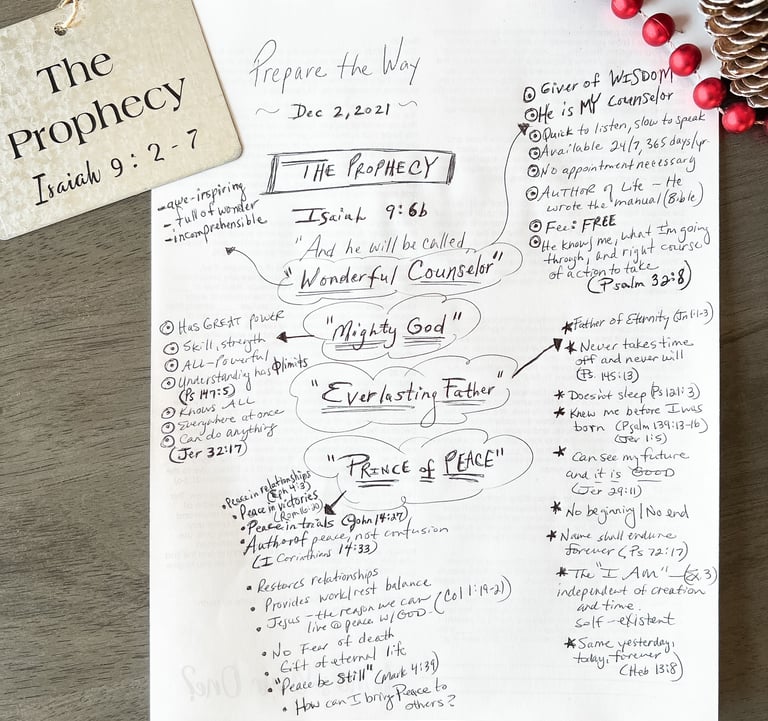 The
Prophecy
Isaiah 9:2-7
Prepare the Way
~ Dec 2, 2021 ~
THE PROPHECY
Isaiah 9:6b
"And he will be called,
"Wonderful Counselor"
"Mighty God"
"Everlasting Father"
"PRINCE of PEACE"
- awe-inspiring
- full of wonder
- incomprehensible
Giver of WISDOM
He is MY Counselor
Quick to listen, slow to speak
Available 24/7, 365 days/yr.
No appointment necessary
AUTHOR of Life - He
wrote the manual (Bible)
Fee: FREE
He knows me, what I'm going
through, and right course
of action to take
(Psalm 32:8)
Has GREAT POWER
Skill, strength
ALL-Powerful
Understanding has Ø limits
(Ps 147:5)
Knows ALL
Everywhere at once
Can do anything
(Jer 32:17)
* Father of Eternity (Jn 1:1-3)
* Never takes time
off and never will
(Ps. 145:13)
* Doesn't sleep (Ps 121:3)
* Knew me before I was
born (Psalm 139:13-16)
(Jer 1:5)
* Can see my future
and it is GOOD
(Jer 29:11)
* No beginning / No end
* Name shall endure
forever (Ps 72:17)
* The "I AM" - (Ex 3)
independent of creation
and time.
self-existent
* Same yesterday,
today, forever
(Heb 13:8)
• Peace in relationships
(Eph 4:3)
• Peace in victories
(Rom 16:20)
• Peace in trials (John 14:27)
• Author of peace, not confusion
(I Corinthians 14:33)
• Restores relationships
• Provides work/rest balance
• Jesus - the reason we can
live @ peace w/ GOD. (Col 1:19-21)
• No Fear of death
• Gift of eternal life
• "Peace be Still" (Mark 4:39)
• How can I bring Peace to
others?